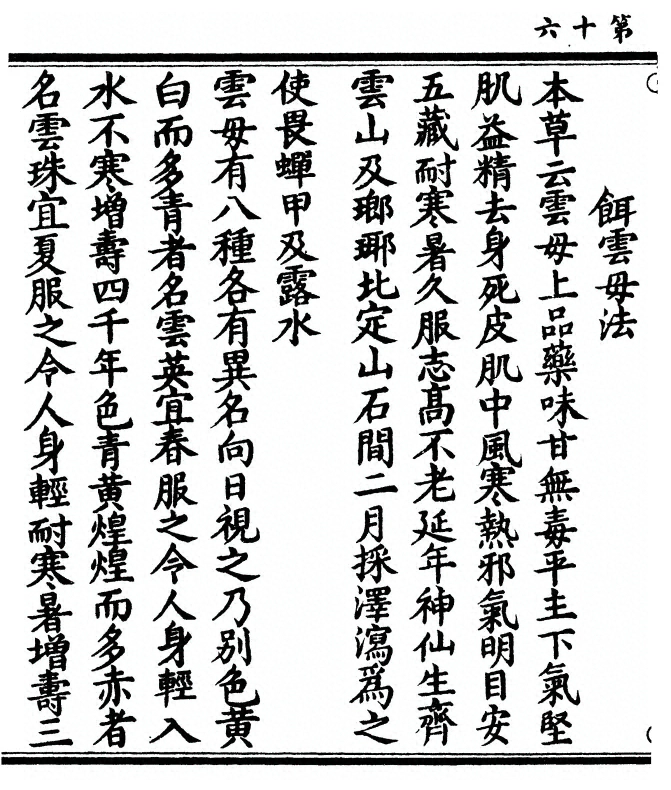 第十六
餌雲母法
本草云雲母上品藥味甘無毒平主下氣堅
肌益精去身死皮肌中風寒熱邪氣明目安
五藏耐寒暑久服志高不老延年神仙生齊
雲山及瑯琊北定山石間二月採澤瀉爲之
使畏蟬甲及露水
雲母有八種各有異名向日視之乃別色黃
白而多青者名雲英宜春服之令人身輕入
水不寒增壽四千年色青黃煌煌而多赤者
名雲珠宜夏服之令人身輕耐寒暑增壽三